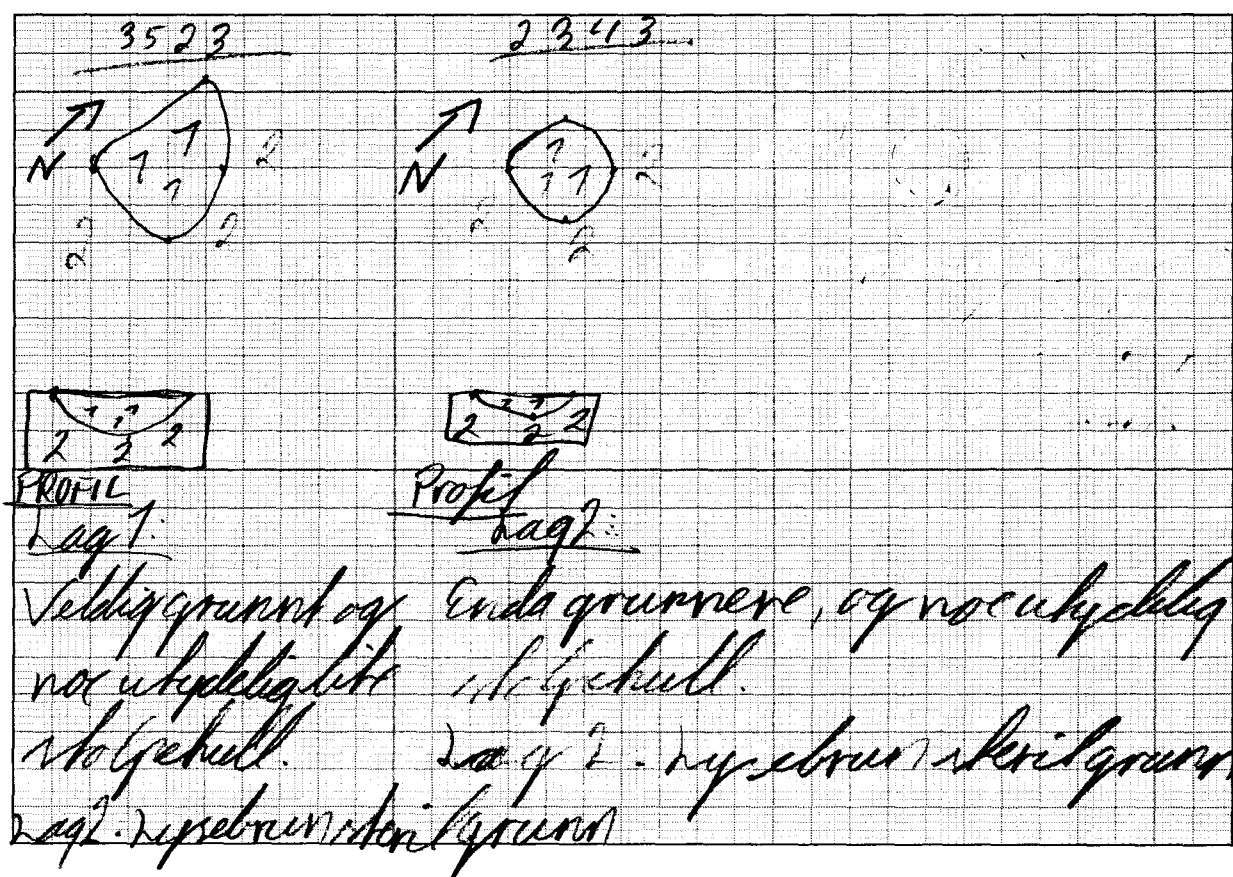 3523
N
1
1
1
2
2
2
2
1 1
1
2 2 2
PROFIL
Lag 1:
Veldig grunnt og
noe utydelig lite
stolpehull.
Lag 2. Lysebrun steril grunn
2343
N
1
1 1
2
2
2
1 1
2 2 2
Profil
Lag 2:
Enda grunnere, og noe utydelig
stolpehull.
Lag 2 - Lysebrun steril grunn